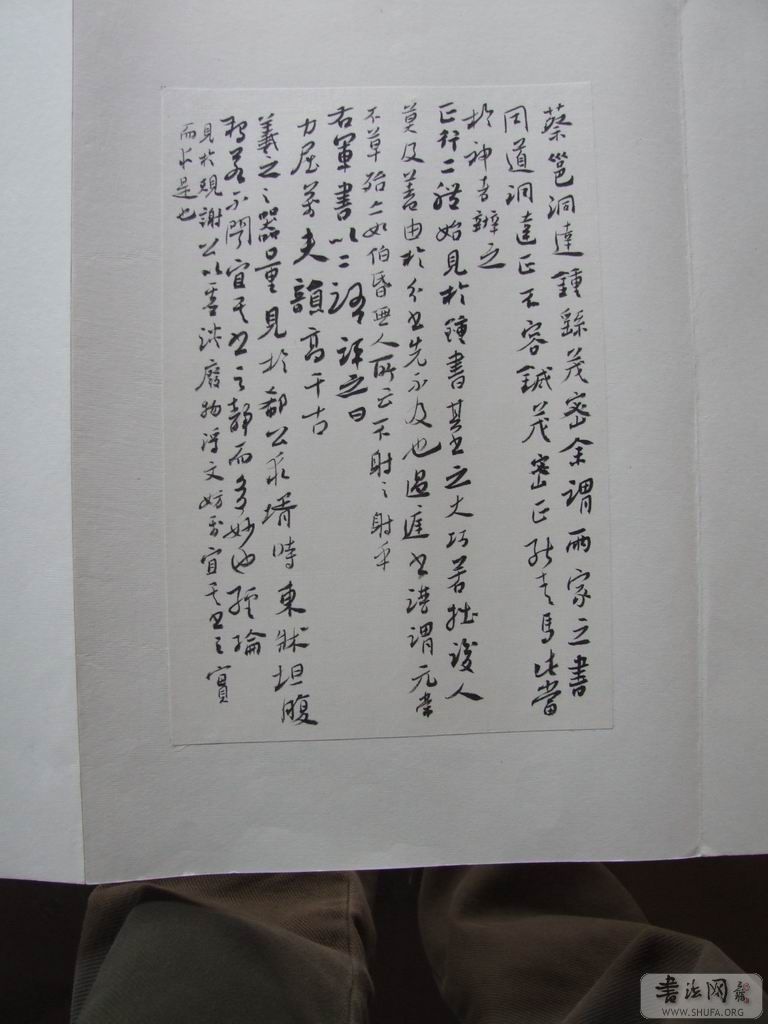 蔡邕洞達鍾繇茂密余謂兩家之書
同道洞達正不容針茂密正能走馬此當
於神者辨之
正行二體始見於鍾書其書之大巧若拙後人
莫及蓋由於分書先不及也過庭書譜謂元常
不草殆亦如伯昏無人所云不射之射乎
右軍書以二語評之曰
力屈萬夫韻高千古
羲之之器量見於郗公求壻時東牀坦腹
獨若不聞宜其書之靜而多妙也經綸
見於規謝公以虛談廢務浮文妨要宜其書之實
而求是也
書法网
WWW.SHUFA.ORG